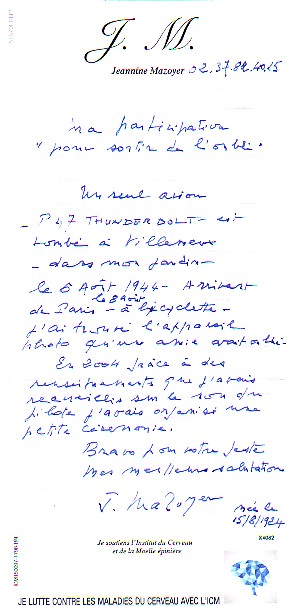 J. M.
Jeannine Mazoyer 02.37.82.40.15
Ma participation
"pour sortir de l'oubli"
Un seul avion
- P 47 THUNDERBOLT - est
tombé à Villemeux
- dans mon jardin -
le 8 Août 1944 - Arrivant
le 8 août
de Paris - à bicyclette -
j'ai trouvé l'appareil
photo qu'une amie avait oublié.
En 2004 grâce à des
renseignements que j'avais
recueillis sur le
pilote j'avais organisé une
petite cérémonie.
Bravo pour votre geste
mes meilleures salutations
J. Mazoyer née le
15/8/1924
Je soutiens l'Institut du Cerveau
et de la Moelle épinière
X4082
JE LUTTE CONTRE LES MALADIES DU CERVEAU AVEC L'ICM